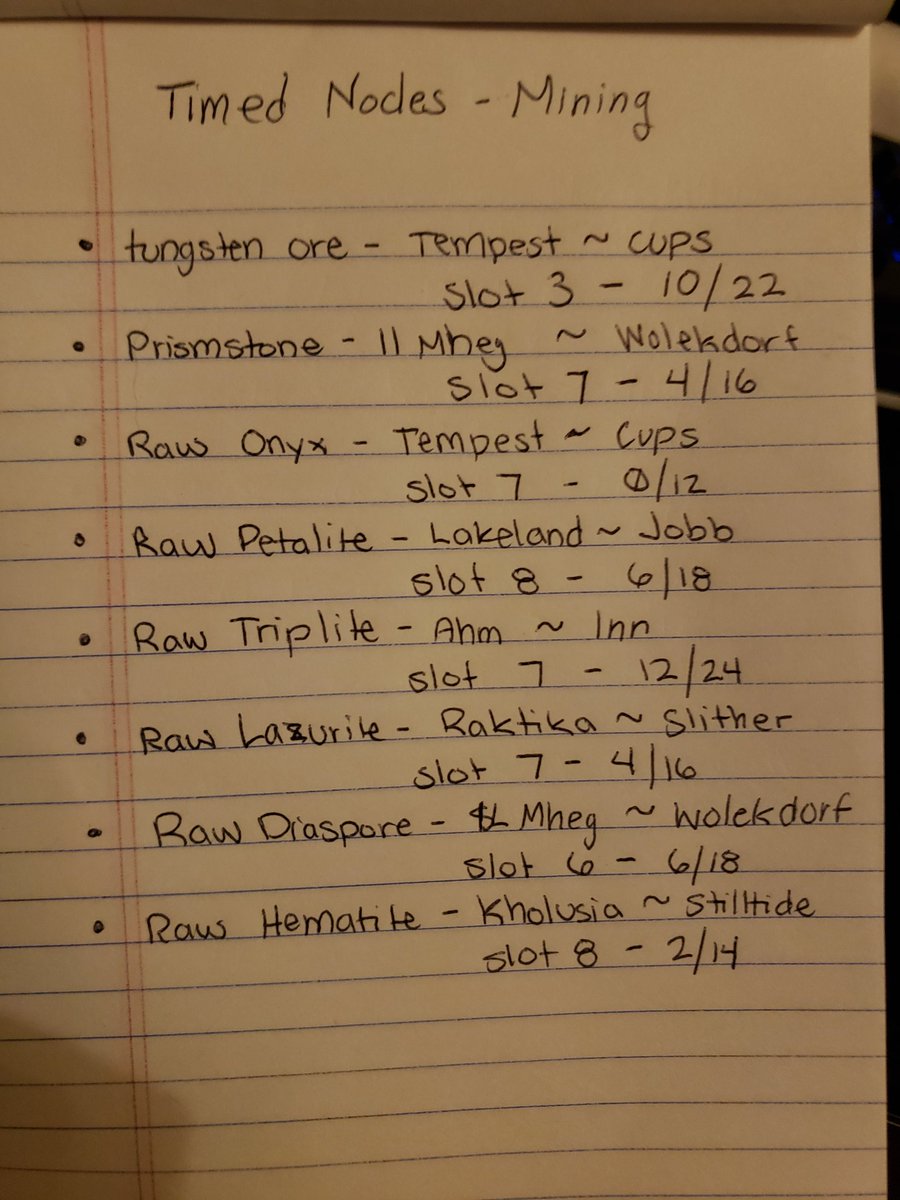 Timed Nodes - Mining
• tungsten ore - Tempest ~ cups
slot 3 - 10/22
• Prismstone - 11 Mheg ~ Wolekdorf
slot 7 - 4/16
• Raw Onyx - Tempest ~ Cups
slot 7 - 0/12
• Raw Petalite - Lakeland ~ Jobb
slot 8 - 6/18
• Raw Triplite - Ahm ~ Inn
slot 7 - 12/24
• Raw Lazurite - Raktika ~ Slither
slot 7 - 4/16
• Raw Diaspore - Mheg ~ Wolekdorf
slot 6 - 6/18
• Raw Hematite - Kholusia ~ Stilltide
slot 8 - 2/14